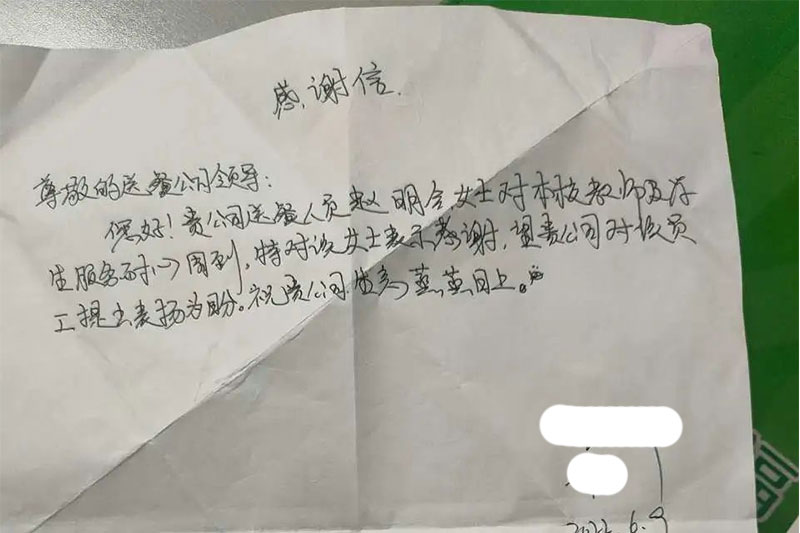 感谢信.
尊敬的送餐公司领导:
您好!贵公司送餐人员赵明会女士对本校教师及学
生服务耐心周到,特对该女士表示感谢,望贵公司对该员
工提出表扬为盼。祝贵公司生意蒸蒸日上。
2022.6.9